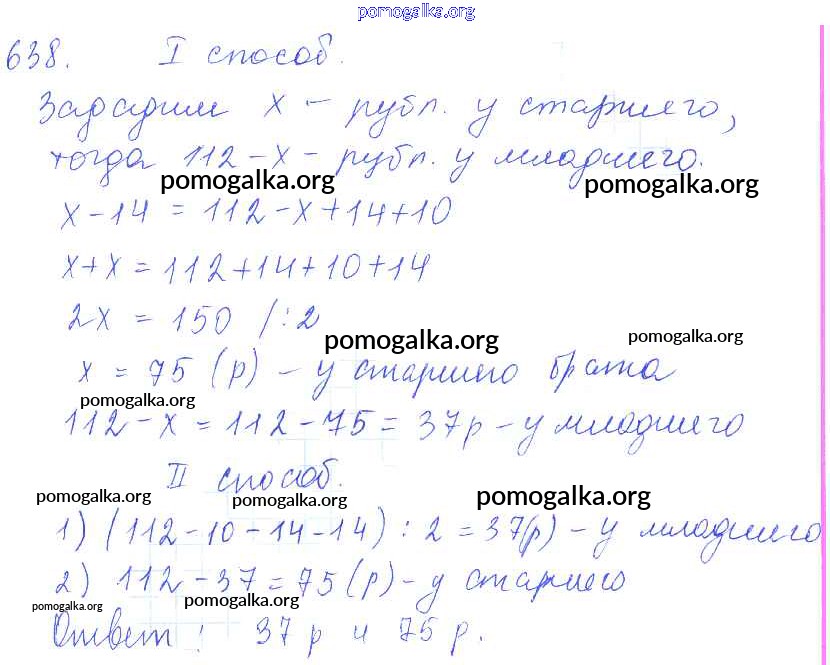 pomogalka.org
638. I способ.
Зададим x - рубл. у старшего,
тогда 112-x - рубл. у младшего.
pomogalka.org pomogalka.org
x-14 = 112-x+14+10
x+x = 112+14+10+14
2x = 150 /:2
pomogalka.org pomogalka.org
x = 75 (р) - у старшего брата
pomogalka.org
112-x = 112-75 = 37р - у младшего
II способ.
pomogalka.org pomogalka.org pomogalka.org
1) (112-10-14-14) : 2 = 37(р) - у младшего
2) 112-37=75(р) - у старшего
pomogalka.org pomogalka.org
Ответ: 37р и 75р.